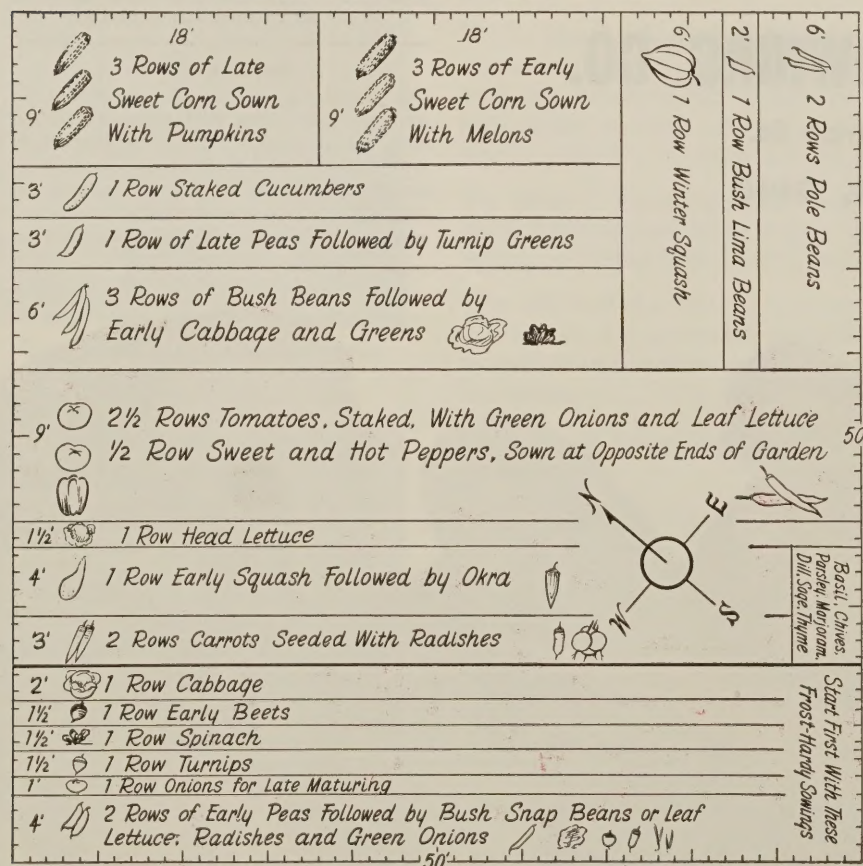 18'
9'
3 Rows of Late
Sweet Corn Sown
With Pumpkins
18'
9'
3 Rows of Early
Sweet Corn Sown
With Melons
6'
1 Row Winter Squash
2'
1 Row Bush Lima Beans
6'
2 Rows Pole Beans
3' 1 Row Staked Cucumbers
3' 1 Row of Late Peas Followed by Turnip Greens
6' 3 Rows of Bush Beans Followed by
Early Cabbage and Greens
9' 2½ Rows Tomatoes, Staked, With Green Onions and Leaf Lettuce
½ Row Sweet and Hot Peppers, Sown at Opposite Ends of Garden
50
N
E
W
S
1½' 1 Row Head Lettuce
4' 1 Row Early Squash Followed by Okra
3' 2 Rows Carrots Seeded With Radishes
Basil, Chives,
Parsley, Marjoram,
Dill, Sage, Thyme
2' 1 Row Cabbage
1½' 1 Row Early Beets
1½' 1 Row Spinach
1½' 1 Row Turnips
1' 1 Row Onions for Late Maturing
4' 2 Rows of Early Peas Followed by Bush Snap Beans or Leaf
Lettuce, Radishes and Green Onions
Start First With These
Frost-Hardy Sowings
50'